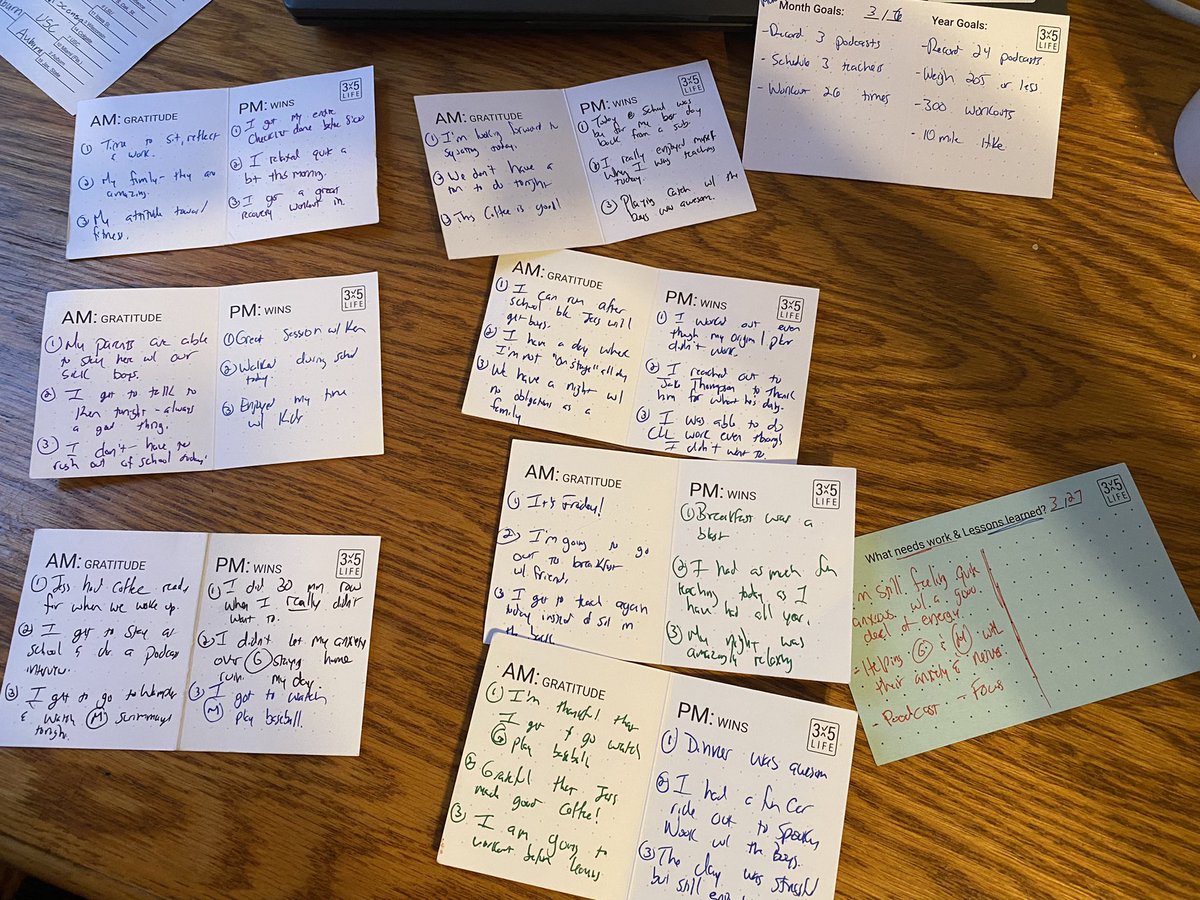 USC
Auburn
AM: GRATITUDE
① Time to sit, reflect
& work.
② My family - they are
amazing.
③ My attitude toward
fitness.
PM: WINS
3x5
LIFE
① I got my entire
Checklist done before
② I relaxed quite a
bit this morning.
③ I got a great
recovery workout in.
AM: GRATITUDE
① I'm looking forward to
today.
② We don't have a
to do tonight
③ This Coffee is good!
PM: WINS
3x5
LIFE
① Today @ School was
by far my best day
back from a sub
② I really enjoyed myself
when I was teaching
today.
③ Playing catch w/ the
boys was awesome.
Month Goals: 3/
- Record 3 podcasts
- Schedule 3 teachers
- Workout 26 times
Year Goals:
3x5
LIFE
- Record 24 podcasts.
- Weigh 205 or less
- 300 workouts
- 10 mile Hike
AM: GRATITUDE
① My parents are able
to stay here w/ our
sick boys.
② I get to talk to
Ken tonight - always
a good thing.
③ I don't have to
rush out of school today.
PM: WINS
3x5
LIFE
① Great Session w/ Ken
② Walked during school
today.
③ Enjoyed my time
w/ Kids
AM: GRATITUDE
① I can run after
school b/c Jess will
get boys.
② I have a day where
I'm not "on stage" all day
③ We have a night w/
no obligations as a
family
PM: WINS
3x5
LIFE
① I worked out even
though my original plan
didn't work.
② I reached out to
Jake Thompson to thank
him for what he's doing.
③ I was able to do
CLL work even though
I didn't want to.
AM: GRATITUDE
① Jess had coffee ready
for when we woke up.
② I get to stay at
school & do a podcast
interview.
③ I get to go to
& watch Ⓜ scrimmage
tonight.
PM: WINS
3x5
LIFE
① I did 30 min row
when I really didn't
want to.
② I didn't let my anxiety
over Ⓖ staying home
ruin my day.
③ I got to watch
Ⓜ play baseball.
AM: GRATITUDE
① It's Friday!
② I'm going to go
out to breakfast
w/ friends.
③ I get to teach again
today instead of sit in
the
PM: WINS
3x5
LIFE
① Breakfast was a
blast
② I had as much fun
teaching today as I
have had all year.
③ My night was
amazingly relaxing
AM: GRATITUDE
① I'm thankful that
I get to go watch
Ⓖ play baseball
② Grateful that Jess
made good Coffee!
③ I am going to
workout before
PM: WINS
3x5
LIFE
① Dinner was awesome
② I had a fun car
ride out to
w/ the Boys.
③ The day was stressful
but still
What needs work & Lessons learned? 3/27
3x5
LIFE
I'm still feeling quite
anxious w/ a good
deal of energy.
- Helping Ⓖ & Ⓜ with
their anxiety & nerves
- Podcast - Focus